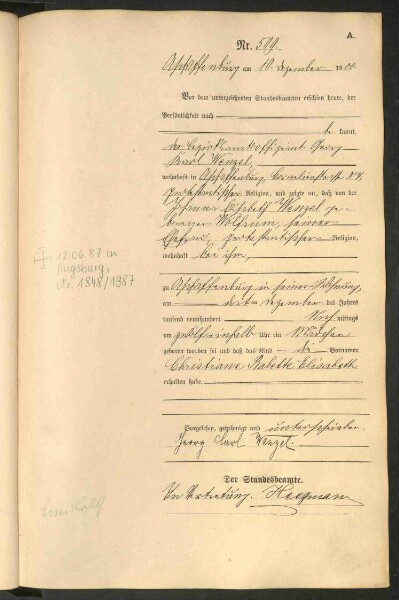 A.
Nr. 509.
Aschaffenburg am 10. Dezember 1900.
Vor dem unterzeichneten Standesbeamten erschien heute, der
Persönlichkeit nach
be kannt,
der Georg
Karl Wenzel,
wohnhaft in Aschaffenburg
protestantischer Religion, und zeigte an, daß von der
Elisabeth Wenzel ge-
Wolfrum, seiner
Ehefrau, protestantischer Religion,
wohnhaft bei ihm,
zu Aschaffenburg in seiner Wohnung
am Dezember des Jahres
tausend neunhundert Nach mittags
um zwölfeinhalb Uhr ein Mädchen
geboren worden sei und daß das Kind die Vornamen
Christiana Babette Elisabeth
erhalten habe.
Vorgelesen, genehmigt und unterschrieben.
Georg Carl Wenzel.
Der Standesbeamte.
In Vertretung.
12.06.87 in
Augsburg,
Nr. 1848/1987